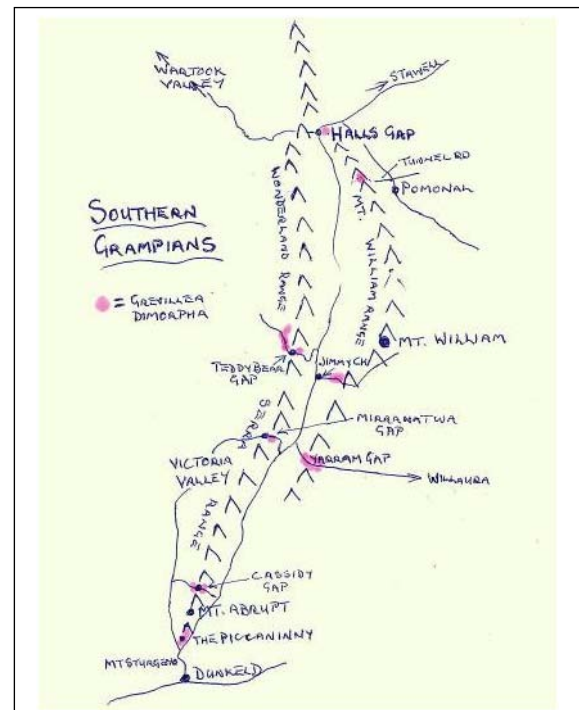 WARTOOK
VALLEY
STAWELL
HALLS GAP
TUNNEL RD
POMONAL
WONDERLAND RANGE
MT. WILLIAM RANGE
SOUTHERN
GRAMPIANS
= GREVILLEA
DIMORPHA
MT. WILLIAM
JIMMY CK
TEDDY BEAR
GAP
SERRA RANGE
MIRRANATWA
GAP
VICTORIA
VALLEY
YARRAM GAP
WILLAURA
CASSIDY
GAP
MT. ABRUPT
THE PICCANINNY
MT STURGEON
DUNKELD